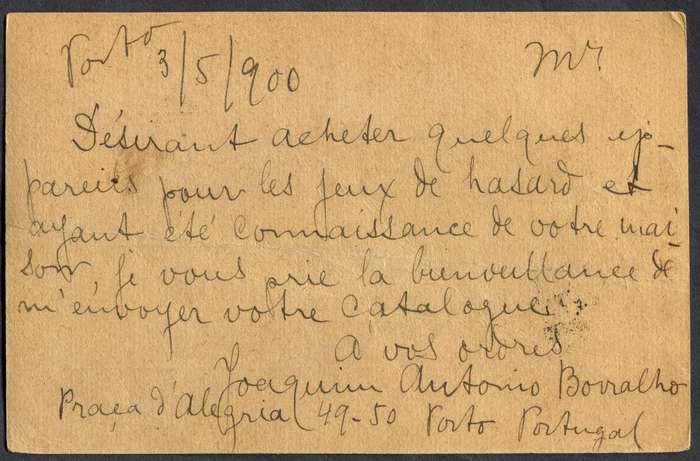 Porto 3/5/900
Mr.
Désirant acheter quelques ap-
pareils pour les jeux de hasard et
ayant été connaissance de votre mai
son, je vous prie la bienveuillance de
m'envoyer votre catalogue.
A vos ordres
Joaquim Antonio Borralho
Praça d'Alegria 49-50 Porto Portugal